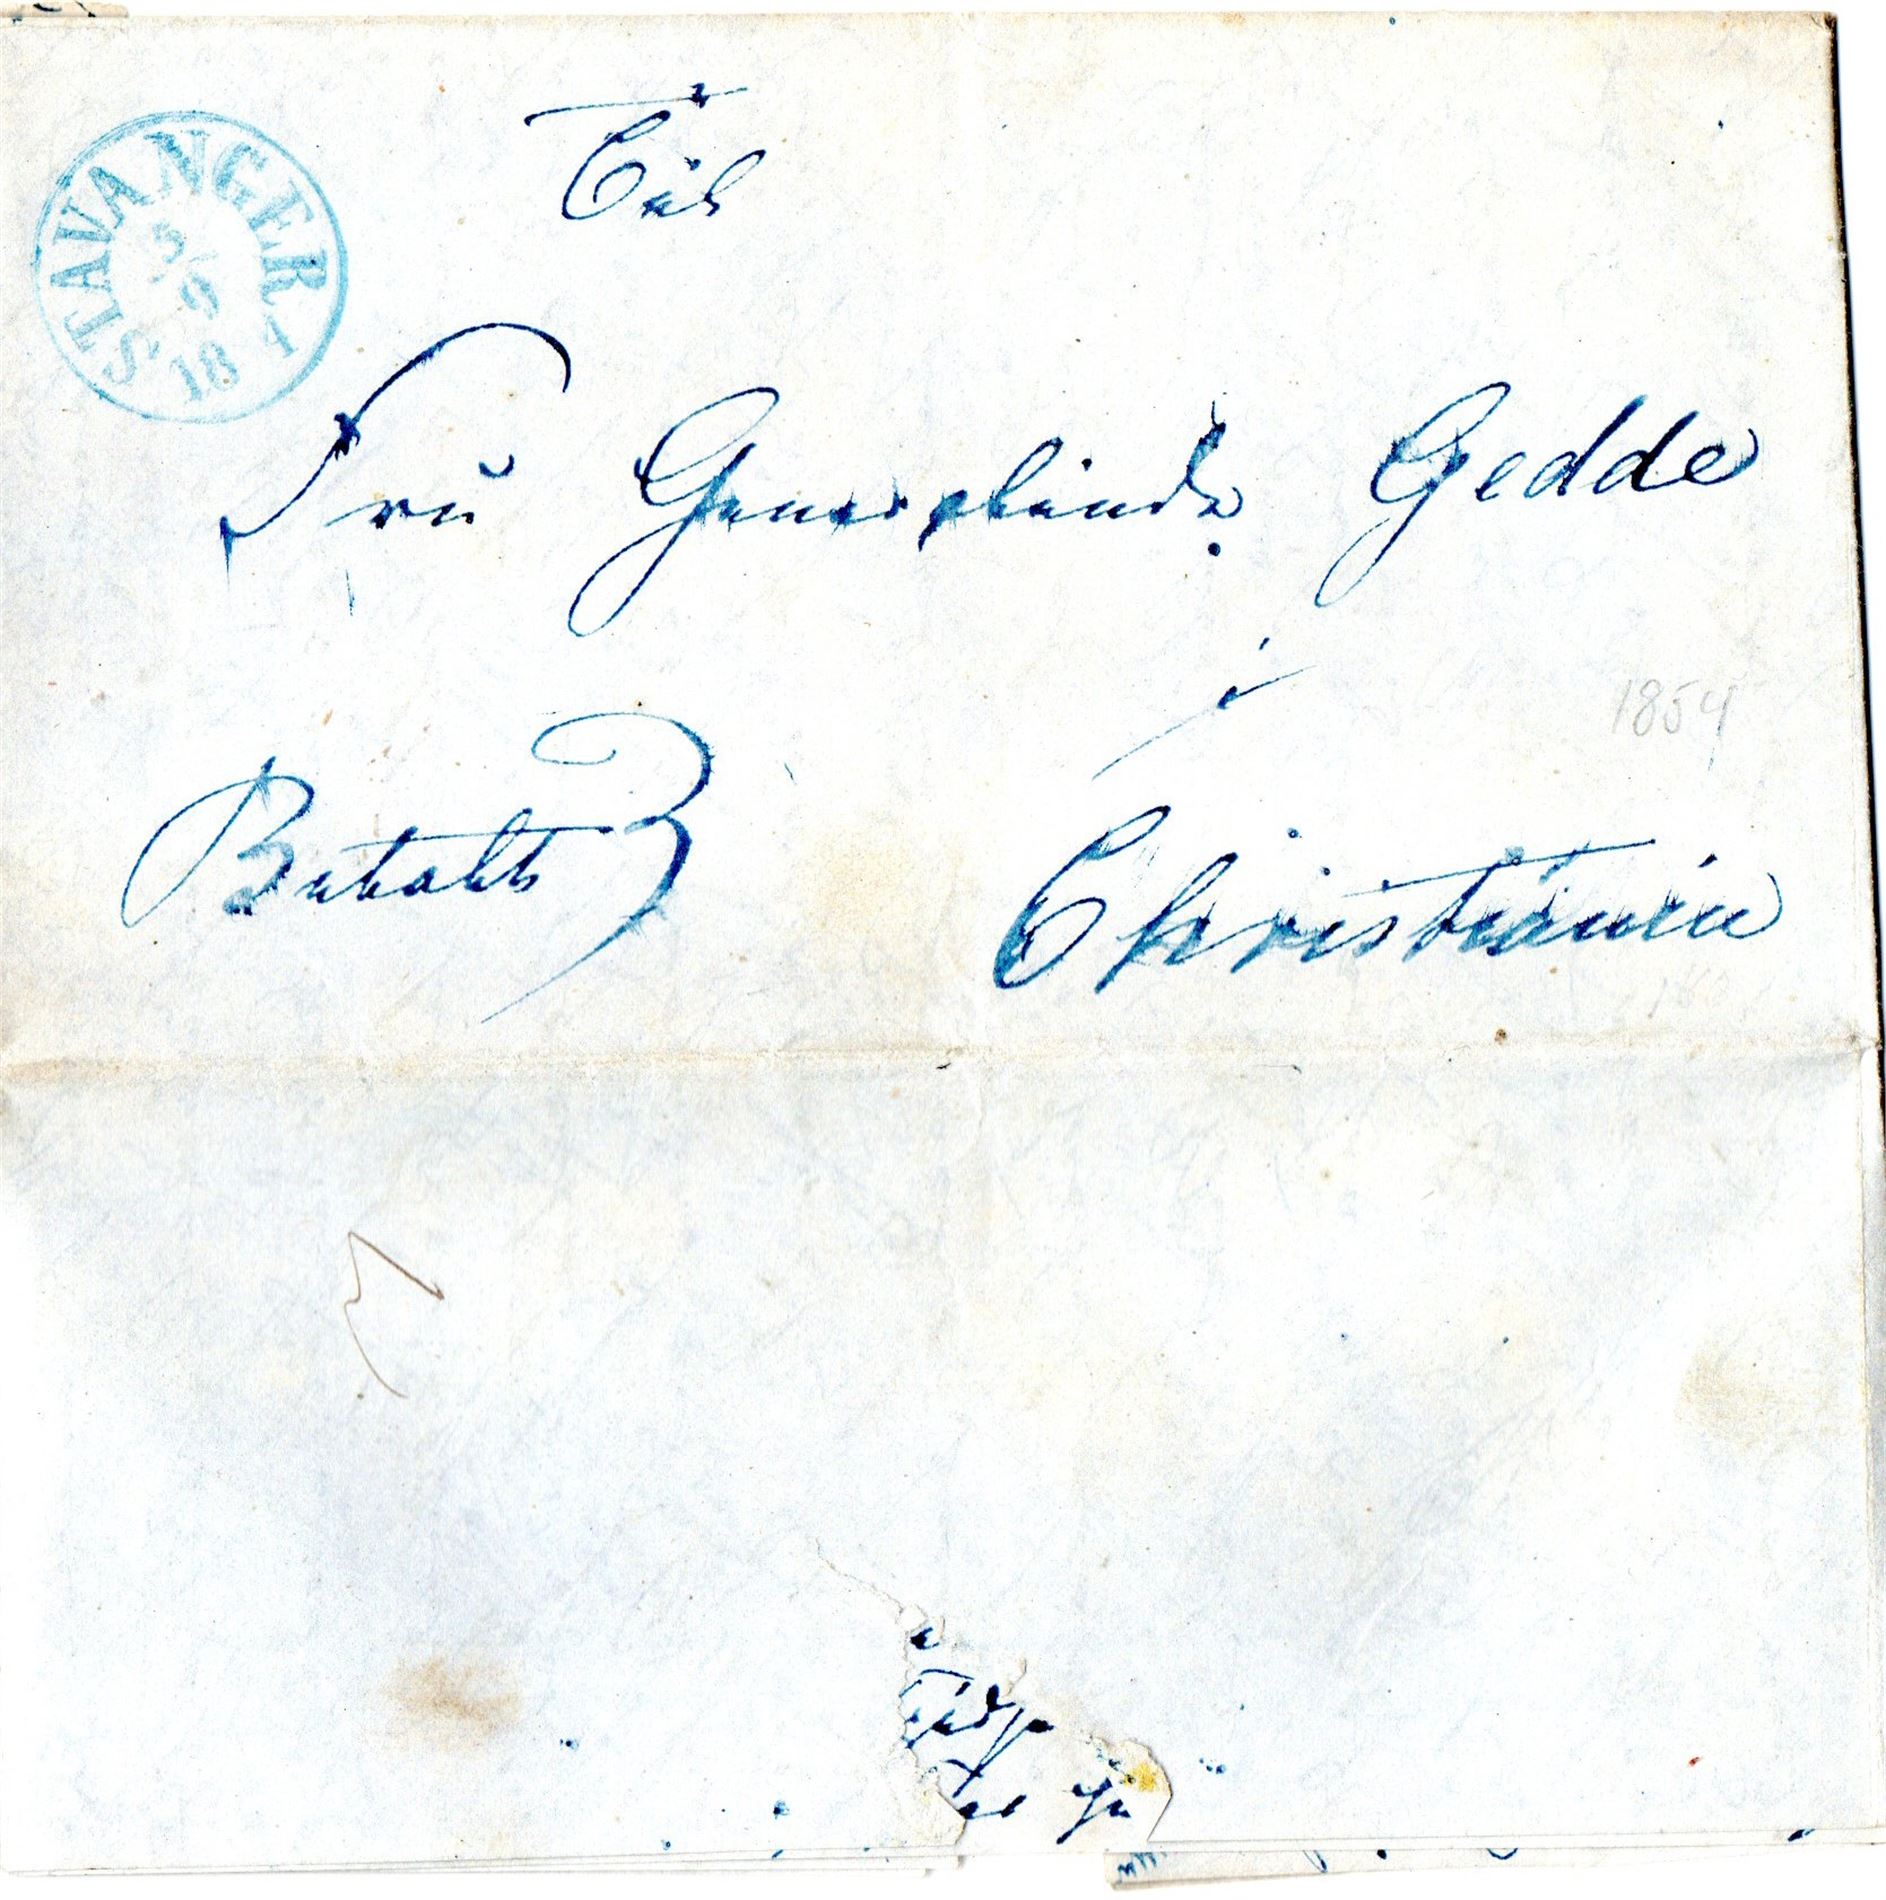 STAVANGER
5/9
18 1
Til
Fru Generalinde Gedde
i
1854
Betalt
Christiania